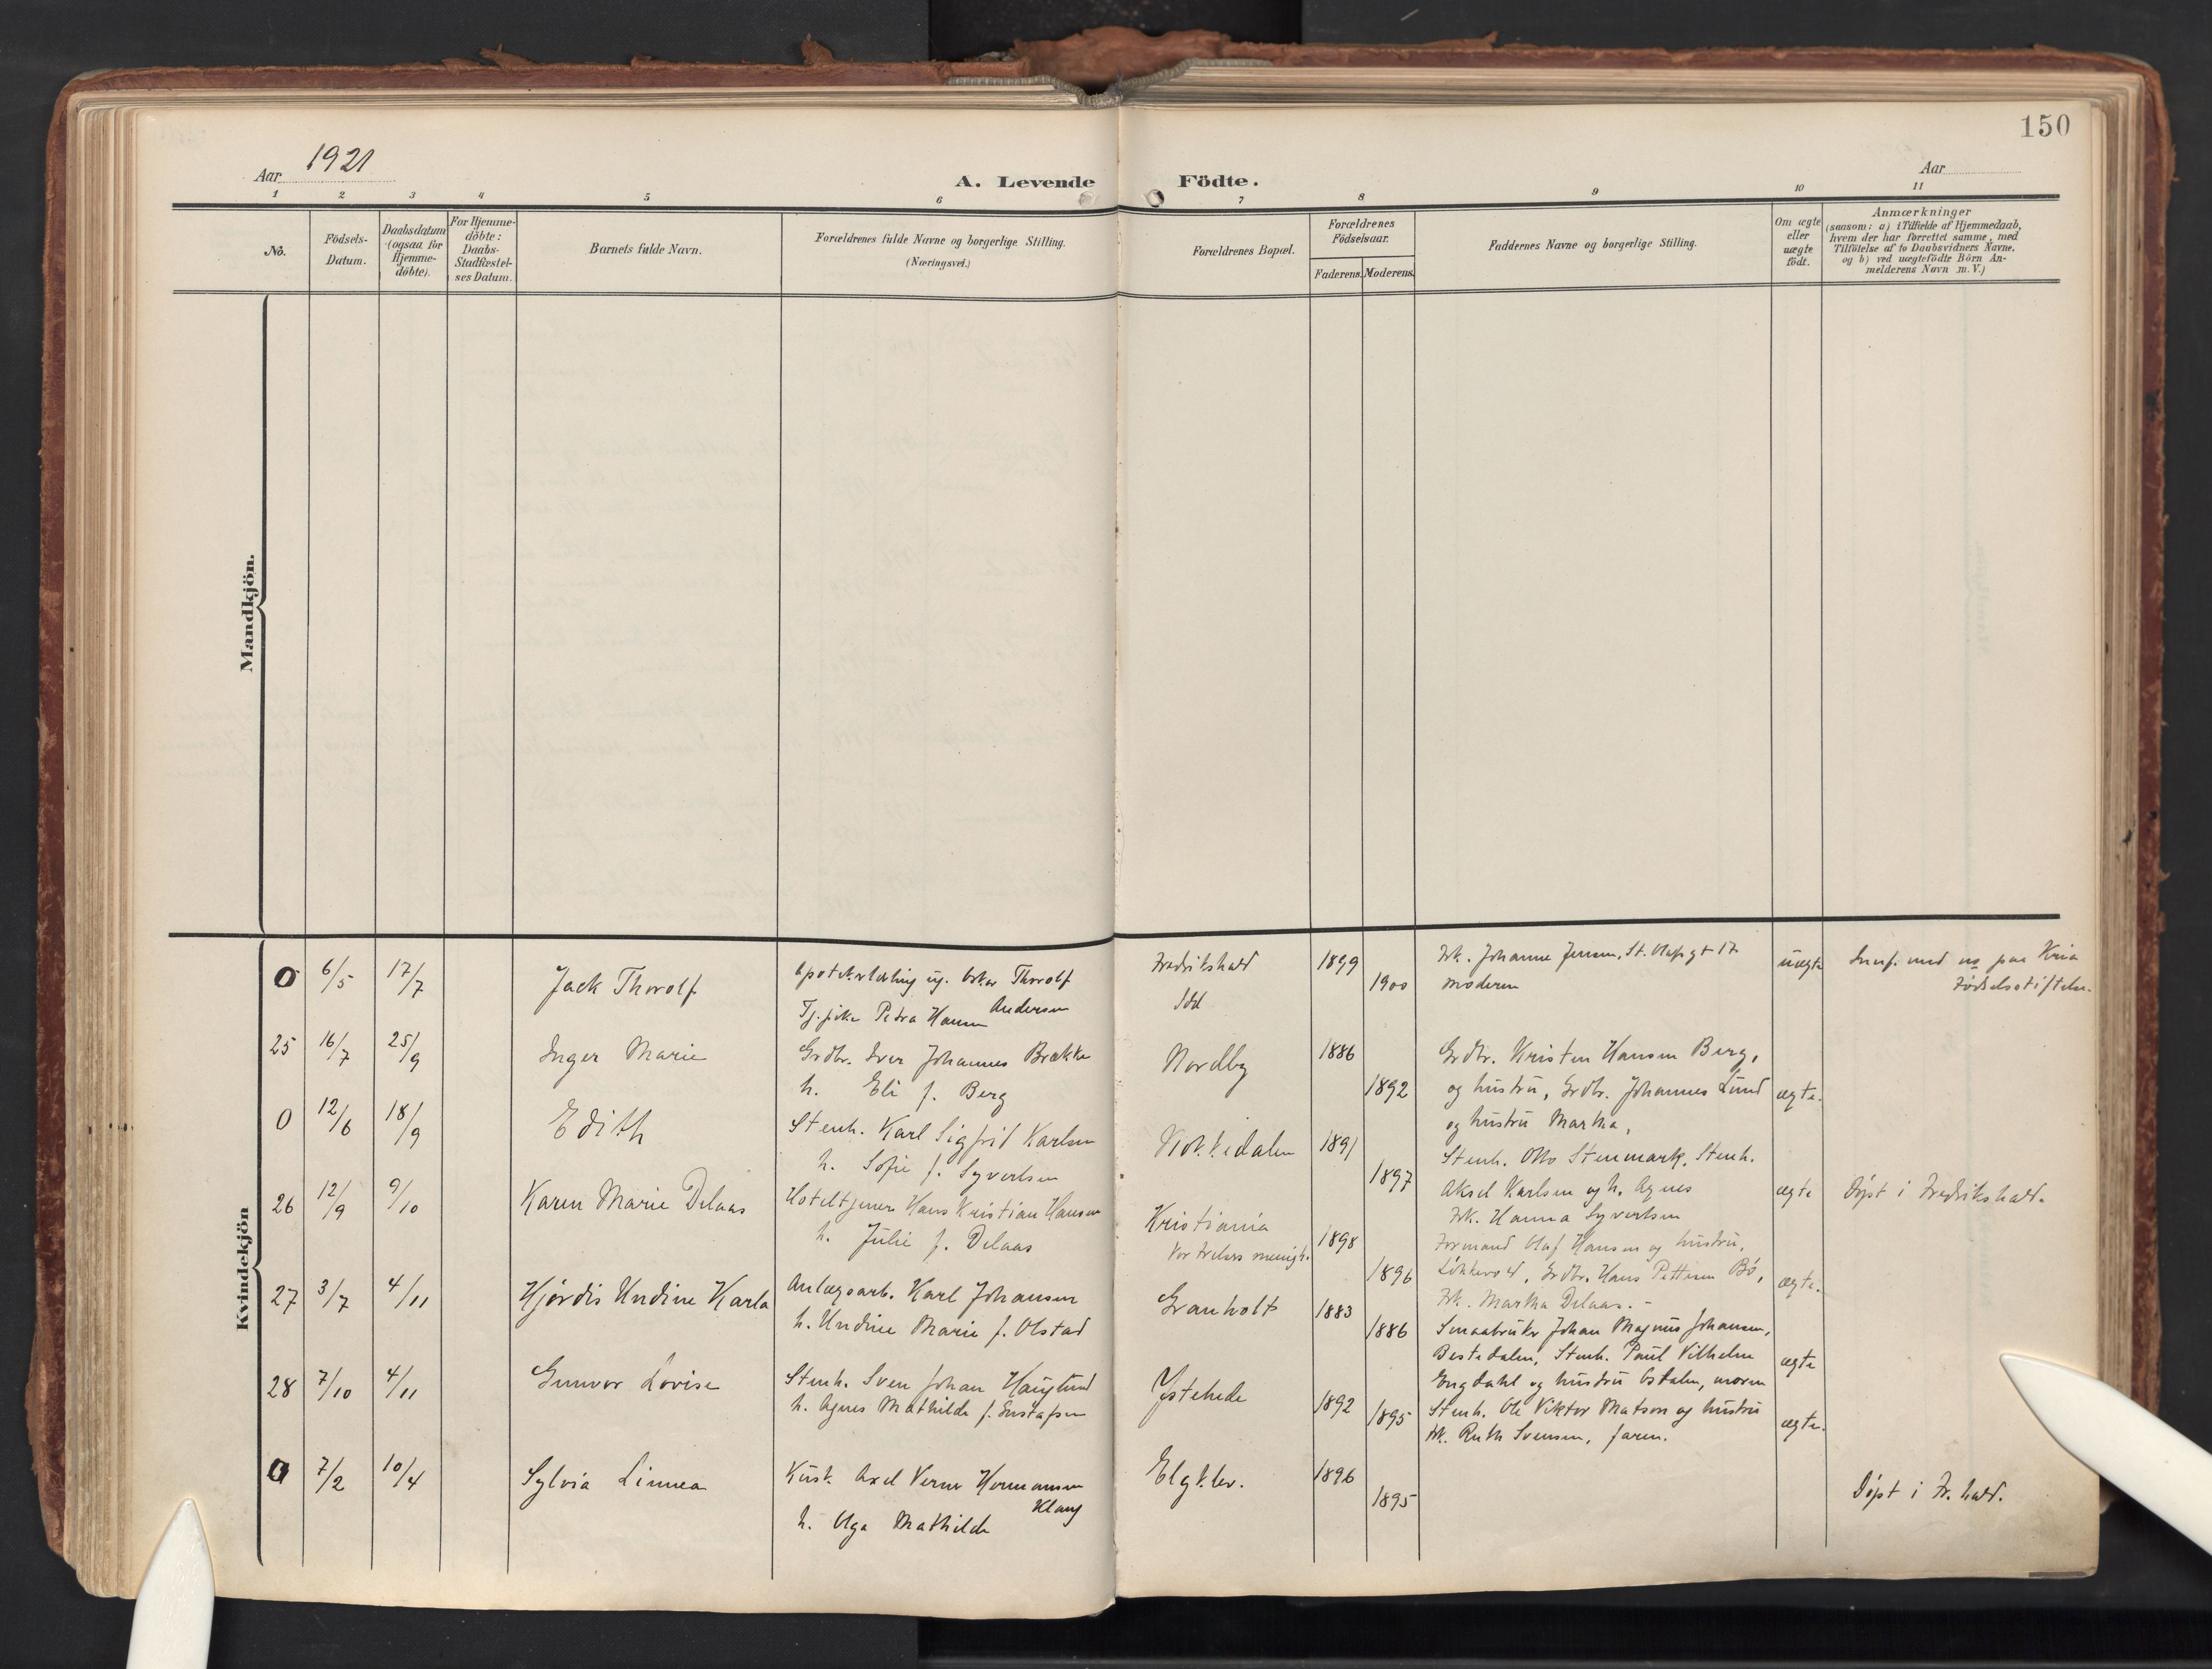 150
Aar 1921
A. Levende Födte.
Aar
1 2 3 4 5 6 7 8 9 10 11
No.
Födsels-
Datum.
Daabsdatum
(ogsaa for
Hjemme-
döbte).
For Hjemme-
döbte:
Daabs-
Stadfæstel-
ses Datum.
Barnets fulde Navn.
Forældrenes fulde Navne og borgerlige Stilling.
(Næringsvei.)
Forældrenes Bopæl.
Forældrenes
Födselsaar.
Faderens. Moderens.
Faddernes Navne og borgerlige Stilling.
Om ægte
eller
uægte
födt.
Anmærkninger
(saasom: a) i Tilfælde af Hjemmedaab,
hvem der har forrettet samme, med
Tilföielse af to Daabsvidners Navne.
og b) ved uægtefödte Börn An-
melderens Navn m. V.)
Mandkjön.
Kvindekjön
0 6/5 17/7 Jack Thorolf
ug. Oskar Thorolf
Andersen
Tj.pike Petra Hansen
Fredrikshald
Idd
1899
1900
Frk. Johanne Jensen, St. Olafsgt 17
moderen
uægte
med no paa Kria
Fødselsstiftelse.
25 16/7 25/9 Inger Marie
Grdbr. Iver Johannes Brække
h. Eli f. Berg
Nordby
1886
1892
Grdbr. Kristen Hansen Berg,
og hustru, Grdbr. Johannes Lund
og hustru Martha,
ægte.
0 12/6 18/9 Edith
Stenh. Karl Sigfrid Karlsen
h. Sofie f. Syvertsen
1891
1897
Stenh. Otto Stenmark, Stenh.
Aksel Karlsen og h. Agnes
Frk. Hanna Syvertsen
ægte
Døpt i Fredrikshald.
26 12/9 9/10 Karen Marie Delaas
Hoteltjener Hans Kristian Hansen
h. Julie f. Delaas
Kristiania
Vor Frelsers menigh.
1898
1896
Formand Olaf Hansen og hustru,
Løkkevold, Grdbr. Hans Pettersen Bø,
Frk. Martha Delaas. -
ægte.
27 3/7 4/11 Hjørdis Undine Karla
Anlægsarb. Karl Johansen
h. Undine Marie f. Olstad
Granholt
1883
1886
Smaabruker Johan Magnus Johansen,
Bestedalen, Stenh. Paul Vilhelm
Engdahl og hustru Osdalen, moren
ægte
28 7/10 4/11 Gunvor Lovise
Stenh. Sven Johan Hauglund
h. Agnes Mathilde f. Gustafsen
Ystehede
1892
1895
Stenh. Ole Viktor Matson og hustru
frk. Ruth Svensen, faren.
ægte.
0 7/2 10/4 Sylvia Linnea
Kusk. Axel Verner Hermansen
Klang
h. Olga Mathilde
Elgklev.
1896
1895
Døpt i Fr.hald.